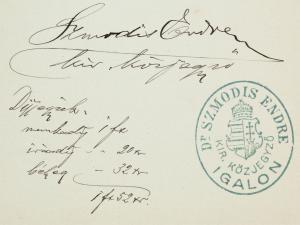 Szmodis Endre
kir. közjegyző
Díjjegyzék:
munkadíj 1 ft
irásdíj -- 20 kr
bélyeg -- 32 kr
1 ft 52 kr.
Dr SZMODIS ENDRE
KIR. KÖZJEGYZŐ
IGALON